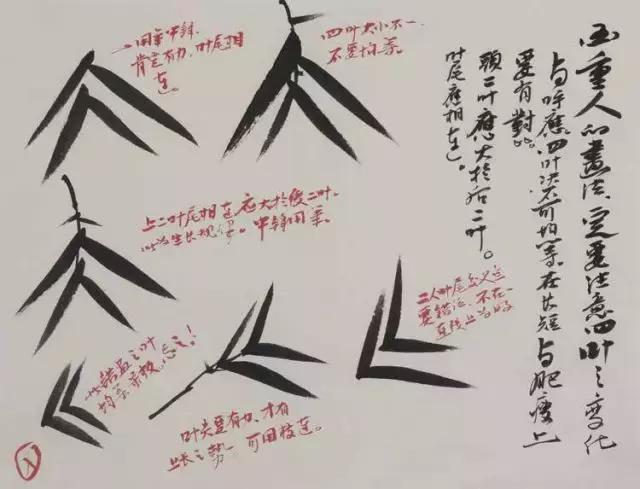 画重人的畫法，定要注意四叶之变化
与呼應。四叶决不可均等在长短与肥瘦上
要有對比。
頭二叶應大於后二叶。
叶尾應相连。
一用筆中鋒，
肯定有力，叶尾相
连。
四叶大小不一，
不要均等。
上二叶尾相连应大於後二叶，
此为生长规律。中锋用笔。
二人叶尾交叉定
要錯落，不在一
直线上为好
此錯在之叶
均呈平板，忌之！
叶尖要有力，才有
上长之势 可用枝连。